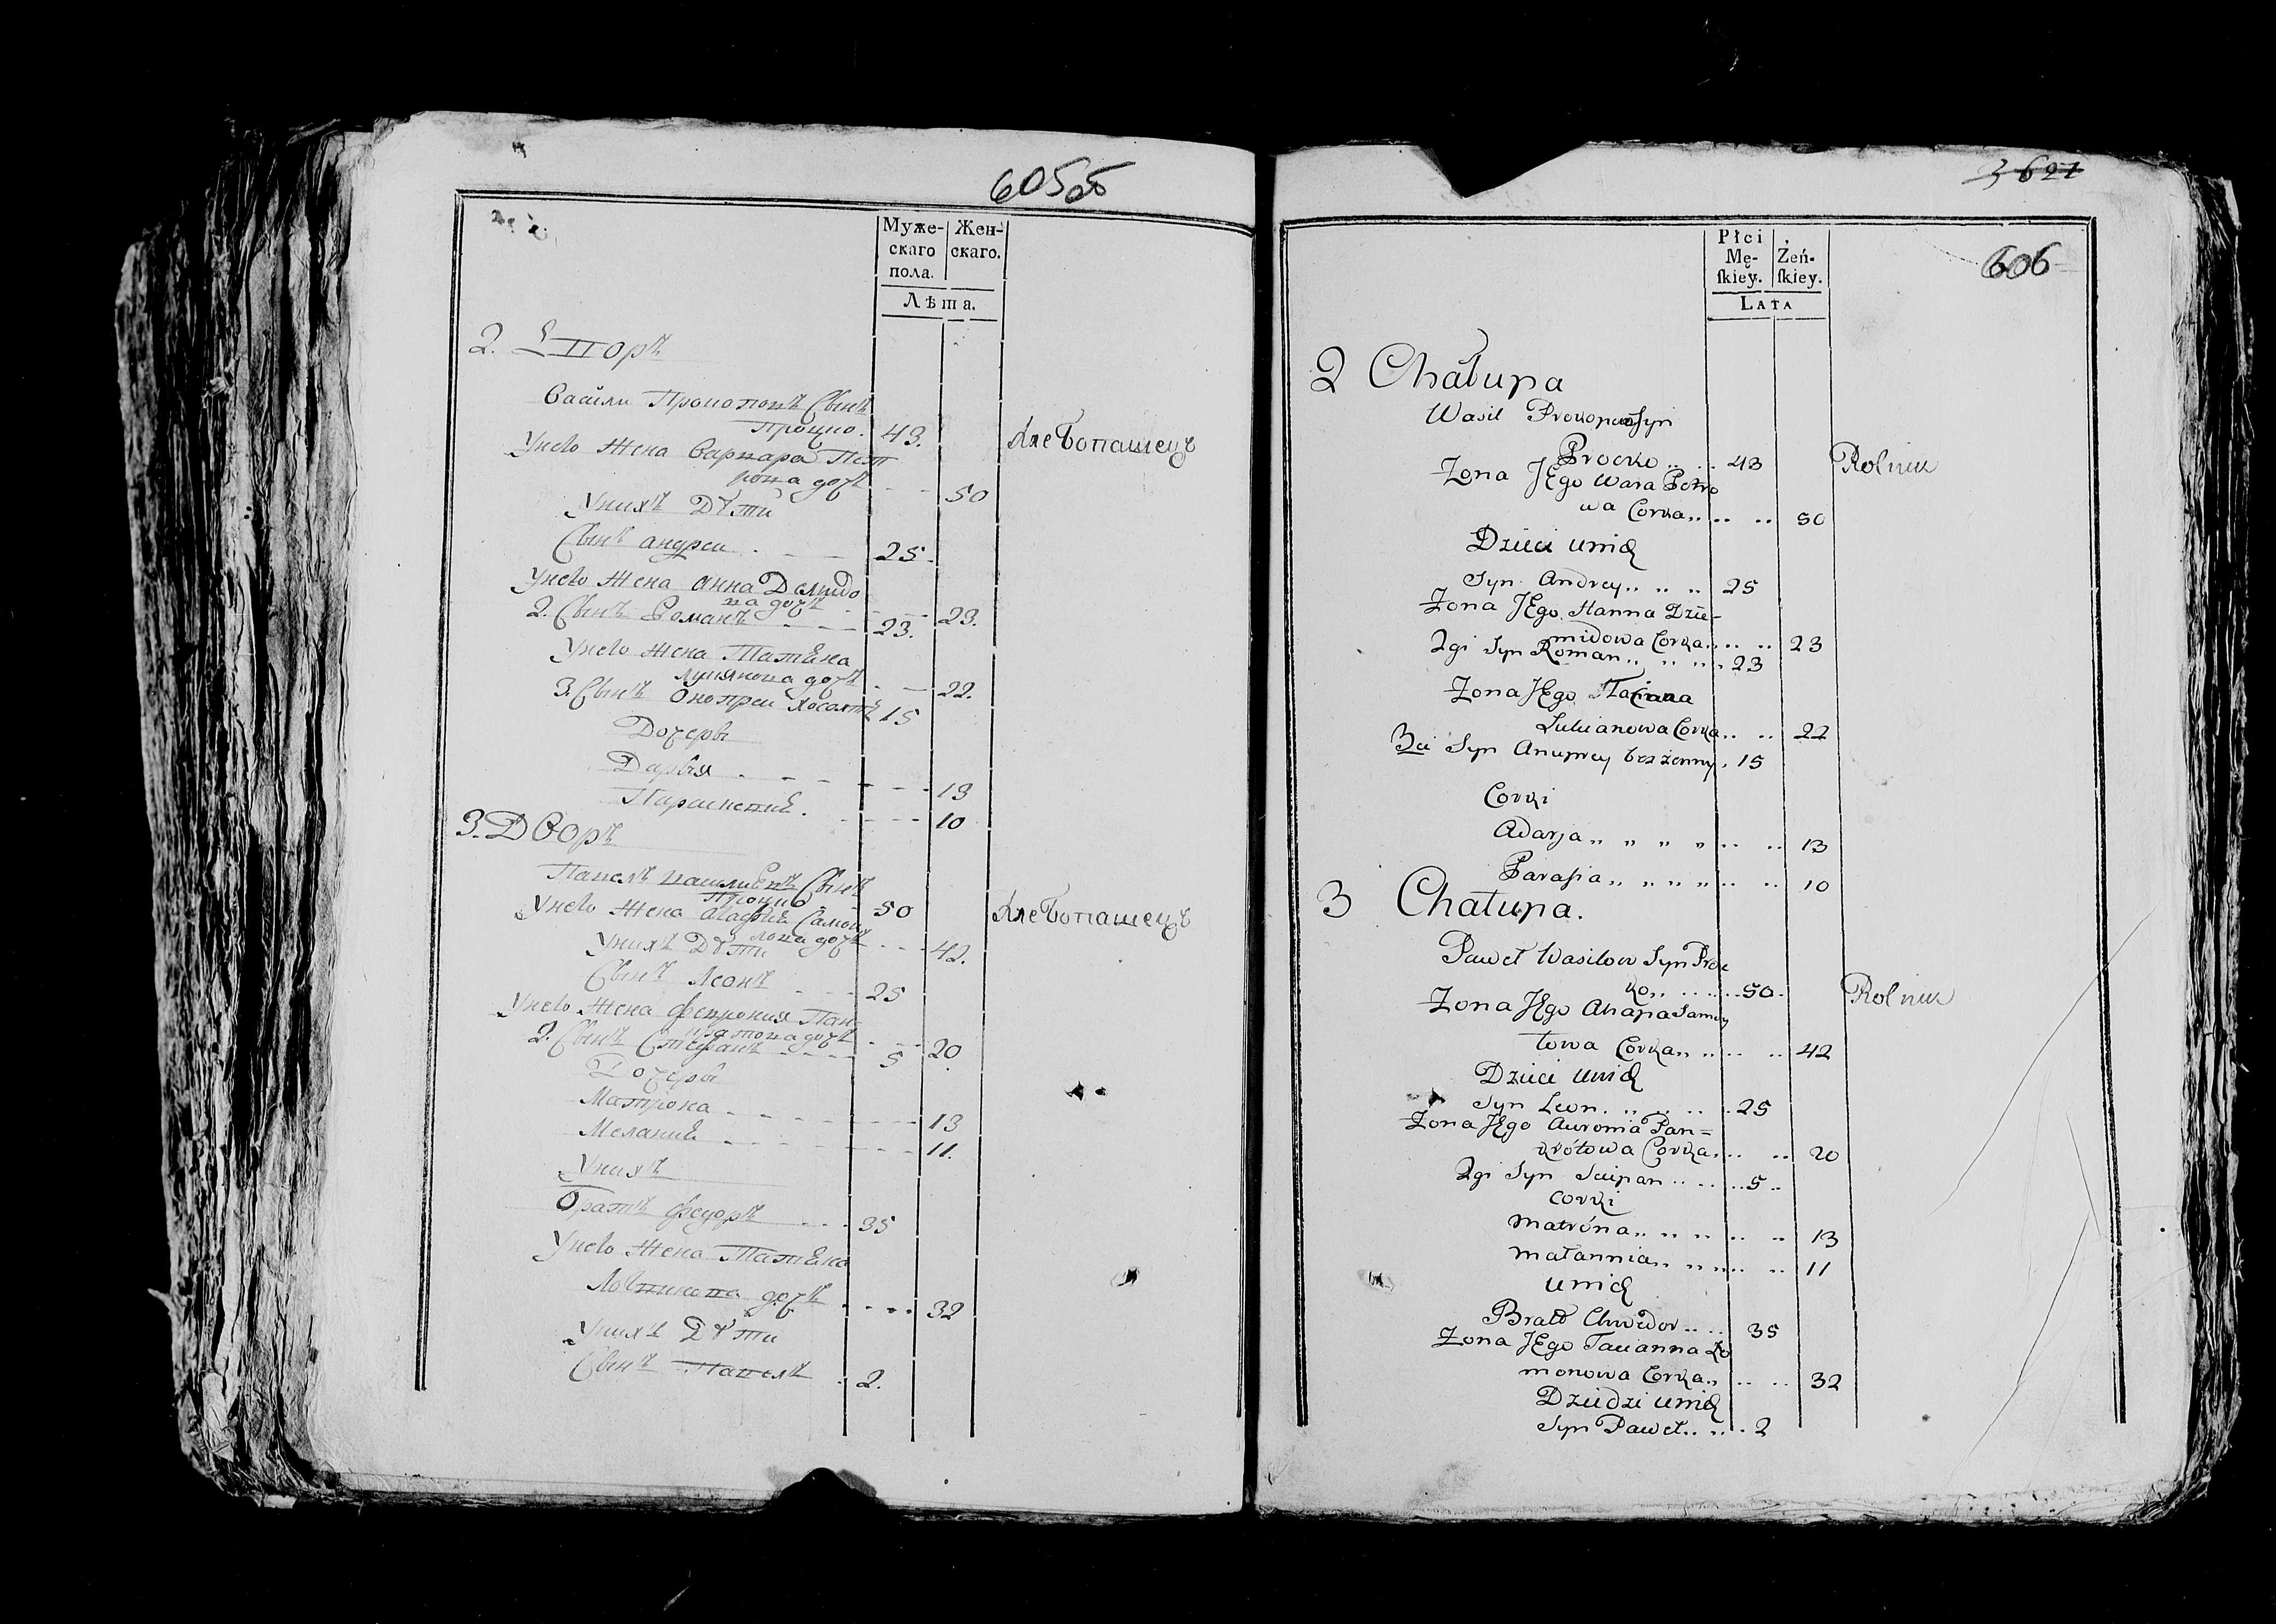 605 об
Муже-
скаго
пола.
Жен-
скаго.
Лѣта.
2. Дворъ
Васили Прокоповъ Сынъ
Процко. 43. Хлебопашецъ
Унево Жена Варвара Пет
рова дочь 50
Унихъ Дѣти
Сынъ андреи 25.
Унево Жена анна Демидо
ва дочь 23.
2. Сынъ Романъ 23.
Унево Жена Татьяна
Лукянова дочь 22.
3. Сынъ Онопреи холостъ 15
Дочерьи
Дарья 13
Параскевия 10
3. Дворъ
Павелъ василиевъ Сынъ
Процко 50 Хлебопашецъ
Унево Жена агафия Самои
лова дочь 42.
Унихъ Дѣти
Сынъ Леонъ 25
Унево Жена феврония Пан-
кратова дочь 20
2. Сынъ Стефанъ 5
Дочерьи
Матрона 13
Мелания 11.
Унихъ
Братъ федоръ 35
Унево Жена Татьяна
дочь 32
Унихъ Дѣти
Сынъ Павелъ 2.
621
606
Płci
Mę-
ſkiey.
Zeń-
ſkiey.
LATA
2 Chałupa
Wasil Prokopow Syn
Procko 43 Rolnik
Zona JEgo Wara Petro
wa Corka 50
Dzieci unich
Syn Andrey 25
Zona JEgo Hanna Dzie-
midowa Corka 23
2gi Syn Roman 23
Zona JEgo Taciana
Lukianowa Corka 22
3ci Syn Anuprey bez żenny 15
Corki
Adarja 13
Parasia 10
3 Chałupa.
Paweł Wasilow Syn Proc
ko 50 Rolnik
Zona JEgo Ahapa Samoy
łowa Corka 42
Dzieci unich
Syn Leon 25
Zona JEgo Auronia Pan=
krótowa Corka 20
2gi Syn Sciepan 5
Corki
Matróna 13
Małannia 11
unich
Bratt Chwedor 35
Zona JEgo Tacianna Lo
monowa Corka 32
Dziedzi unich
Syn Paweł 2